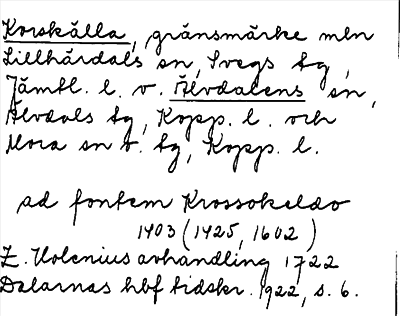 Korskälla, gränsmärke mln
Lillhärdals sn, Svegs tg,
Jämtl. l. v. Älvdalens sn,
Älvdals tg, Kopp. l. och
Mora sn o. tg, Kopp. l.
ad fontem Krossokeldo
1403 (1425, 1602)
Z. Holenius avhandling 1722
Dalarnas hbf tidskr. 1922, s. 6.